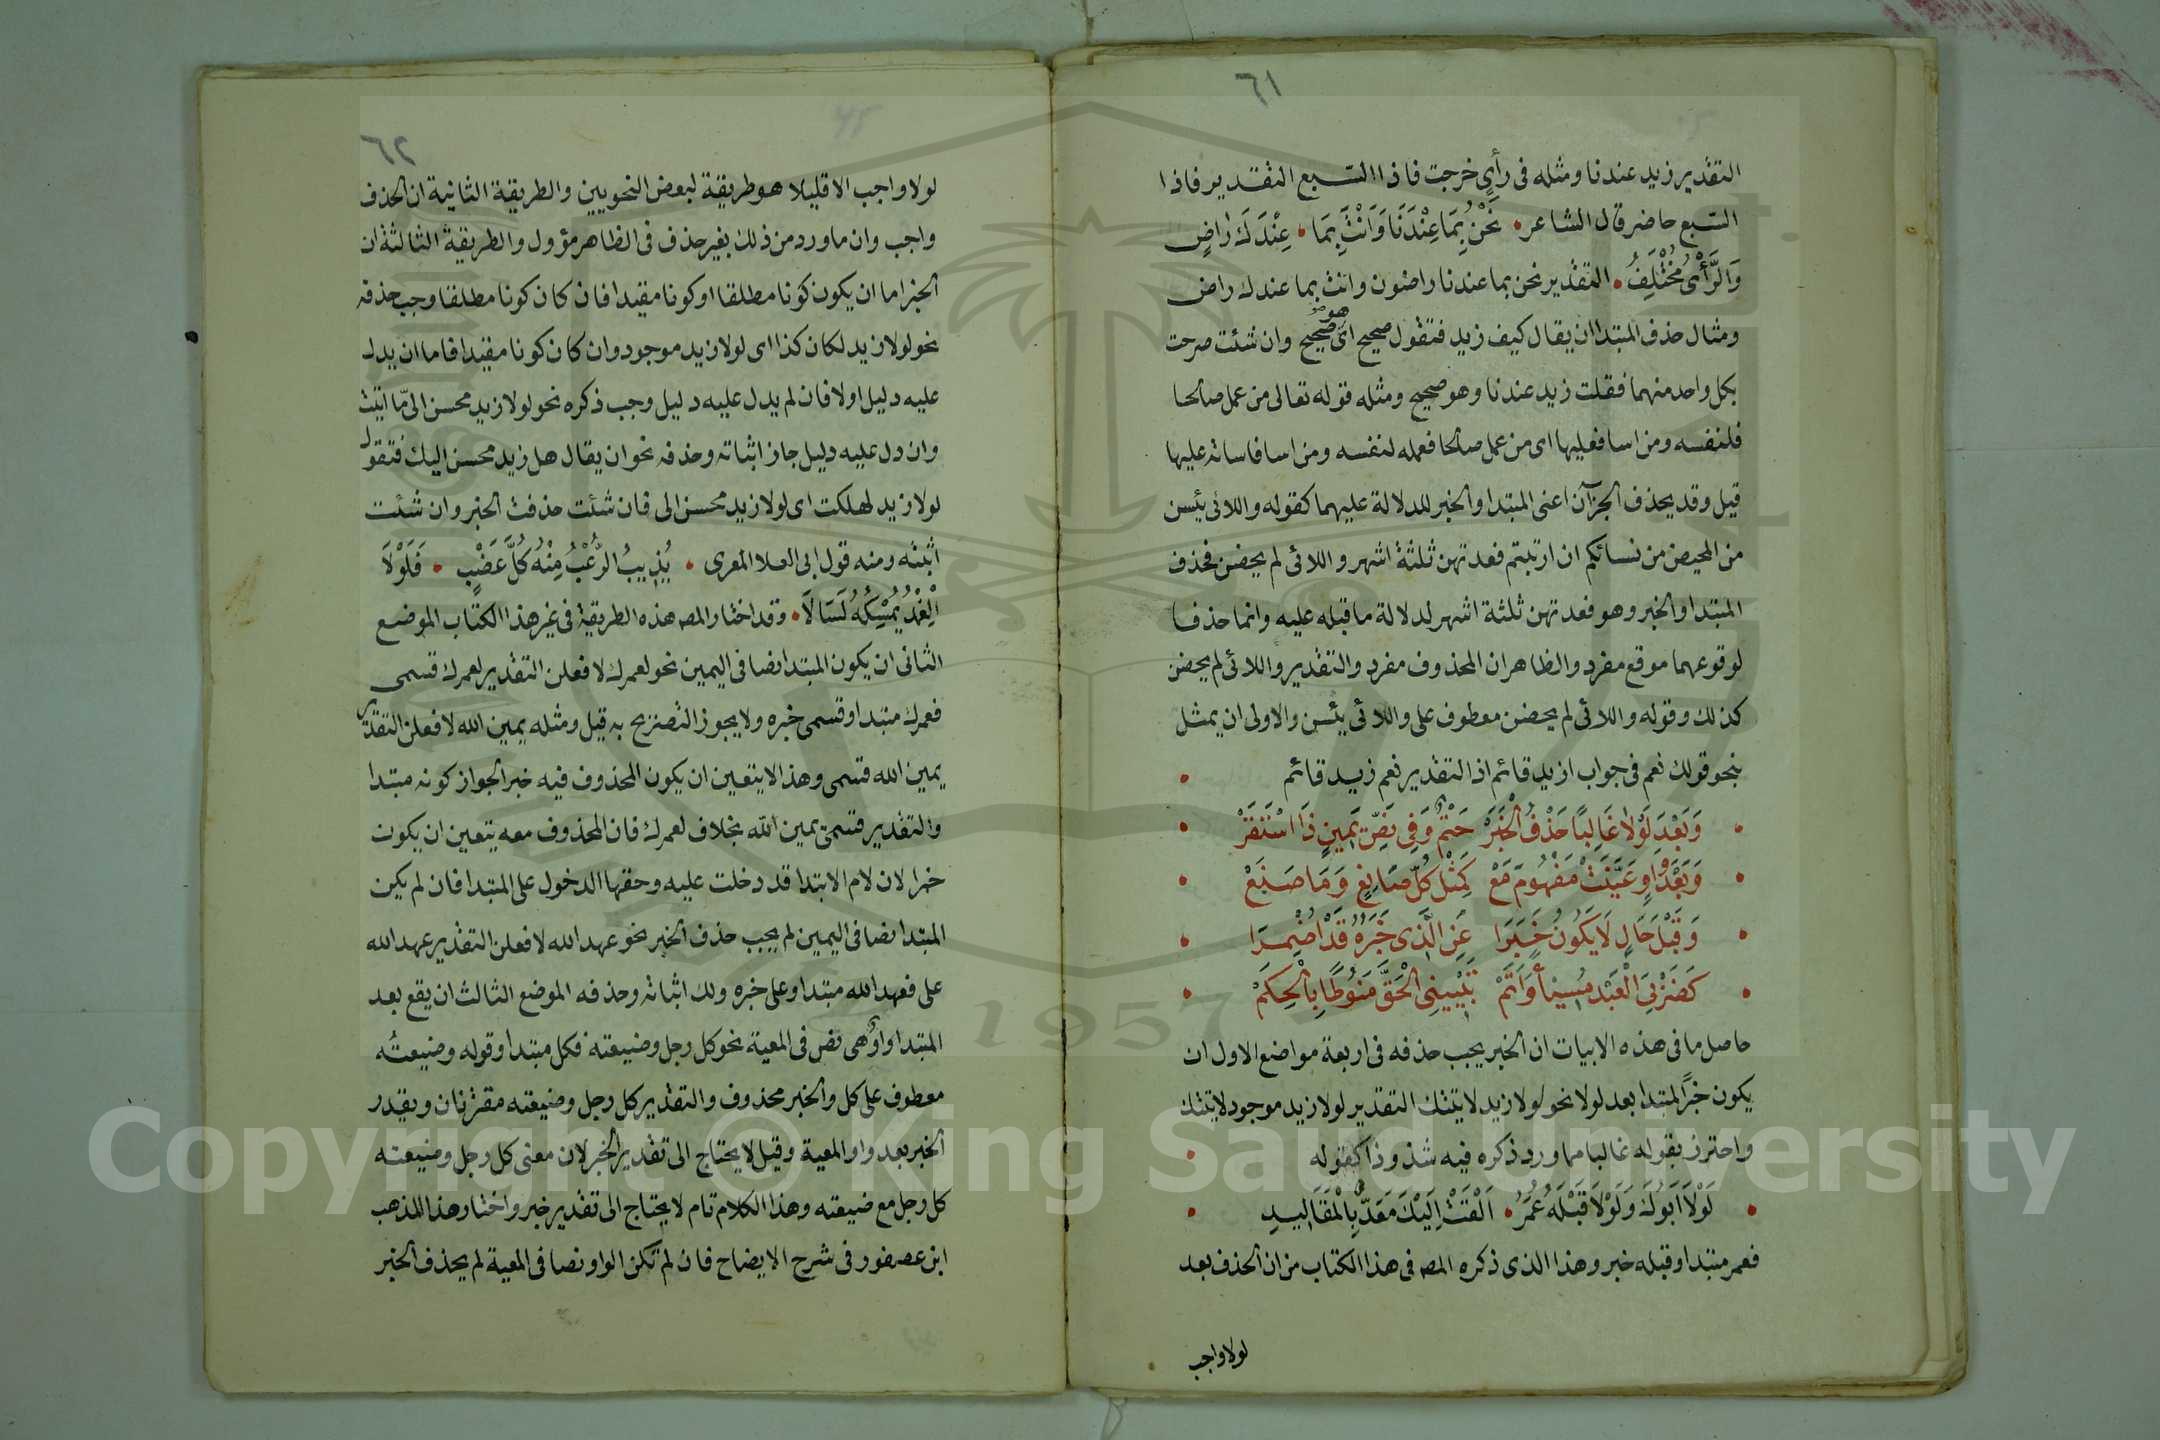 ٦١
التقدير زيد عندنا ومثله فى رأي خرجت فاذا السبع التقدير فاذا
السبع حاضر قال الشاعر نَحْنُ بِمَا عِنْدَنَا وَاَنْتَ بِمَا عِنْدَكَ رَاضٍ
وَالرَّأْىُ مُخْتَلِفُ التقدير نحن بما عندنا راضون وانت بما عندك راض
ومثال حذف المبتدا ان يقال كيف زيد فتقول صحيح اى هو صحيح وان شئت صرحت
بكل واحد منهما فقلت زيد عندنا وهو صحيح ومثله قوله تعالى من عمل صالحا
فلنفسه ومن اسا فعليها اى من عمل صالحا فعمله لنفسه ومن اسا فاساته عليها
قيل وقد يحذف الجزآن اعنى المبتدا والخبر للدلالة عليهما كقوله واللائى يئسن
من المحيض من نسائكم ان ارتبتم فعدتهن ثلثة اشهر واللائى لم يحضن فحذف
المبتدا والخبر وهو فعدتهن ثلثة اشهر لدلالة ما قبله عليه وانما حذفا
لوقوعهما موقع مفرد والظاهر ان المحذوف مفرد والتقدير واللائى لم يحضن
كذلك وقوله واللائى لم يحضن معطوف على واللائى يئسن والاولى ان يمثل
بنحو قولك نعم فى جواب ازيد قائم اذ التقدير نعم زيد قائم
وَبَعْدَ لَوْلَا غَالِبًا حَذْفُ الْخَبَرْ حَتْمٌ وَفِى نَصِّ يَمِينٍ ذَا اسْتَقَرّْ
وَبَعْدَ وَاوٍ عَيَّنَتْ مَفْهُومَ مَعْ كَمِثْلِ كُلُّ صَانِعٍ وَمَا صَنَعْ
وَقَبْلَ حَالٍ لَا يَكُونُ خَبَرَا عَنِ الَّذِى خَبَرُهُ قَدْ اُضْمِرَا
كَضَرْبِىَ الْعَبْدَ مُسِيئًا وَاَتَمّْ تَبْيِينِى الْحَقَّ مَنُوطًا بِالْحِكَمْ
حاصل ما فى هذه الابيات ان الخبر يجب حذفه فى اربعة مواضع الاول ان
يكون خبرًا لمبتدا بعد لولا نحو لولا زيد لاتيتك التقدير لولا زيد موجود لاتيتك
واحترز بقوله غالبا مما ورد ذكره فيه شذوذا كقوله
لَوْلَا اَبُوكَ وَلَوْلَا قَبْلَهُ عُمَرُ اَلْقَتْ اِلَيْكَ مَعَدٌّ بِالْمَقَالِيدِ
فعمر مبتدا وقبله خبر وهذا الذى ذكره المص فى هذا الكتاب من ان الحذف بعد
لولا واجب
٦٢
لولا واجب الا قليلا هو طريقة لبعض النحويين والطريقة الثانية ان الحذف
واجب وان ما ورد من ذلك بغير حذف فى الظاهر مؤول والطريقة الثالثة ان
الخبر اما ان يكون كونا مطلقا او كونا مقيدا فان كان كونا مطلقا وجب حذفه
نحو لولا زيد لكان كذا اى لولا زيد موجود وان كان كونا مقيدا فاما ان يدل
عليه دليل اولا فان لم يدل عليه دليل وجب ذكره نحو لولا زيد محسن الىّ ما اتيت
وان دل عليه دليل جاز اثباته وحذفه نحو ان يقال هل زيد محسن اليك فتقول
لولا زيد لهلكت اى لولا زيد محسن الى فان شئت حذفت الخبر وان شئت
اثبته ومنه قول ابى العلا المعرى يُذِيبُ الرُّعْبُ مِنْهُ كُلَّ عَضْبٍ فَلَوْلَا
الْغِمْدُ يُمْسِكُهُ لَسَالَا وقد اختار المص هذه الطريقة فى غير هذا الكتاب الموضع
الثانى ان يكون المبتدا نصا فى اليمين نحو لعمرك لافعلن التقدير لعمرك قسمى
فعمرك مبتدا وقسمى خبره ولا يجوز التصريح به قيل ومثله يمين الله لافعلن التقدير
يمين الله قسمى وهذا لا يتعين ان يكون المحذوف فيه خبرا لجواز كونه مبتدا
والتقدير قسمى يمين الله بخلاف لعمرك فان المحذوف معه يتعين ان يكون
خبرا لان لام الابتدا قد دخلت عليه وحقها الدخول على المبتدا فان لم يكن
المبتدا نصا فى اليمين لم يجب حذف الخبر نحو عهد الله لافعلن التقدير عهد الله
على فعهد الله مبتدا وعلى خبره ولك اثباته وحذفه الموضع الثالث ان يقع بعد
المبتدا واو هى نص فى المعية نحو كل رجل وضيعته فكل مبتدا وقوله وضيعته
معطوف على كل والخبر محذوف والتقدير كل رجل وضيعته مقترنان ويقدر
الخبر بعد واو المعية وقيل لا يحتاج الى تقدير الخبر لان معنى كل رجل وضيعته
كل رجل مع ضيعته وهذا الكلام تام لا يحتاج الى تقدير خبر واختار هذا المذهب
ابن عصفور فى شرح الايضاح فان لم تكن الواو نصا فى المعية لم يحذف الخبر
1957
Copyright © King Saud University